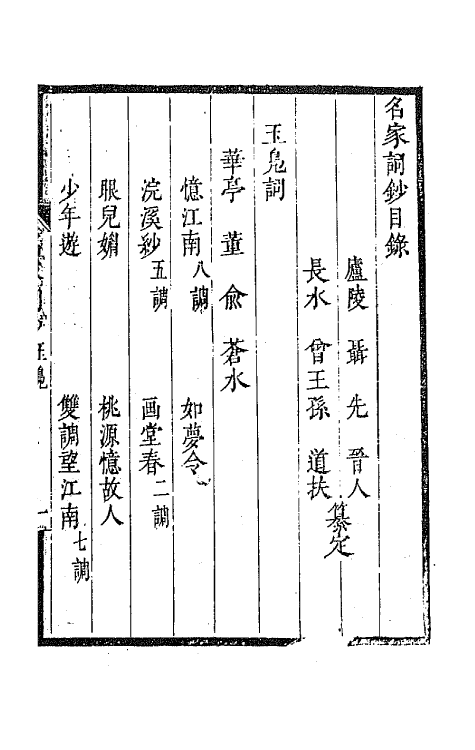 名家詞鈔目錄
廬陵 聶先 晉人
長水 曾王孫 道扶
纂定
玉鳬詞
華亭 董俞 蒼水
憶江南八調 如夢令
浣溪紗五調 画堂春二調
眼兒媚 桃源憶故人
少年遊 雙調望江南七調
玉鳬
一